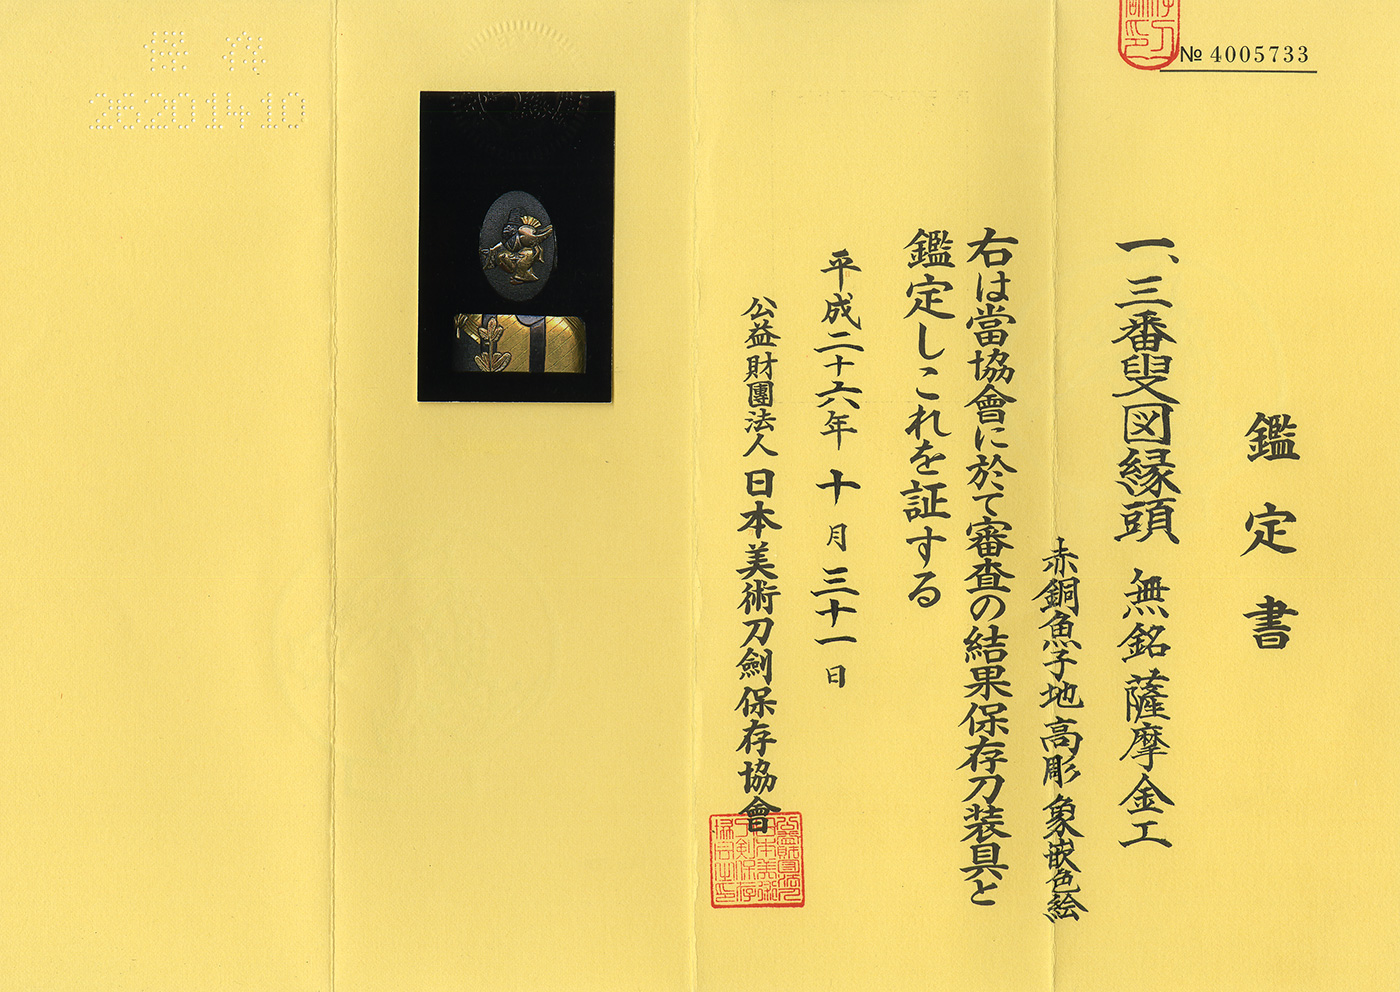 № 4005733
鑑定書
一、三番叟図縁頭 無銘 薩摩金工
赤銅魚子地高彫象嵌色絵
右は當協會に於て審査の結果保存刀装具と
鑑定しこれを証する
平成二十六年 十月 三十一日
公益財團法人 日本美術刀劍保存協會
保存
26201410